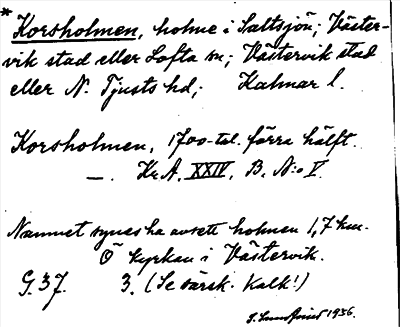 * Korsholmen, holme i Saltsjön; Väster-
vik stad eller Lofta sn; Västervik stad
eller N. Tjusts hd; Kalmar l.
Korsholmen, 1700-tal. förra hälft.
—. Kr.A. XXIV, B, N:o V.
Namnet synes ha avsett holmen 1,7 km.
Ö kyrkan i Västervik.
G. 37. 3. (Se särsk. Kalk!)
1936.